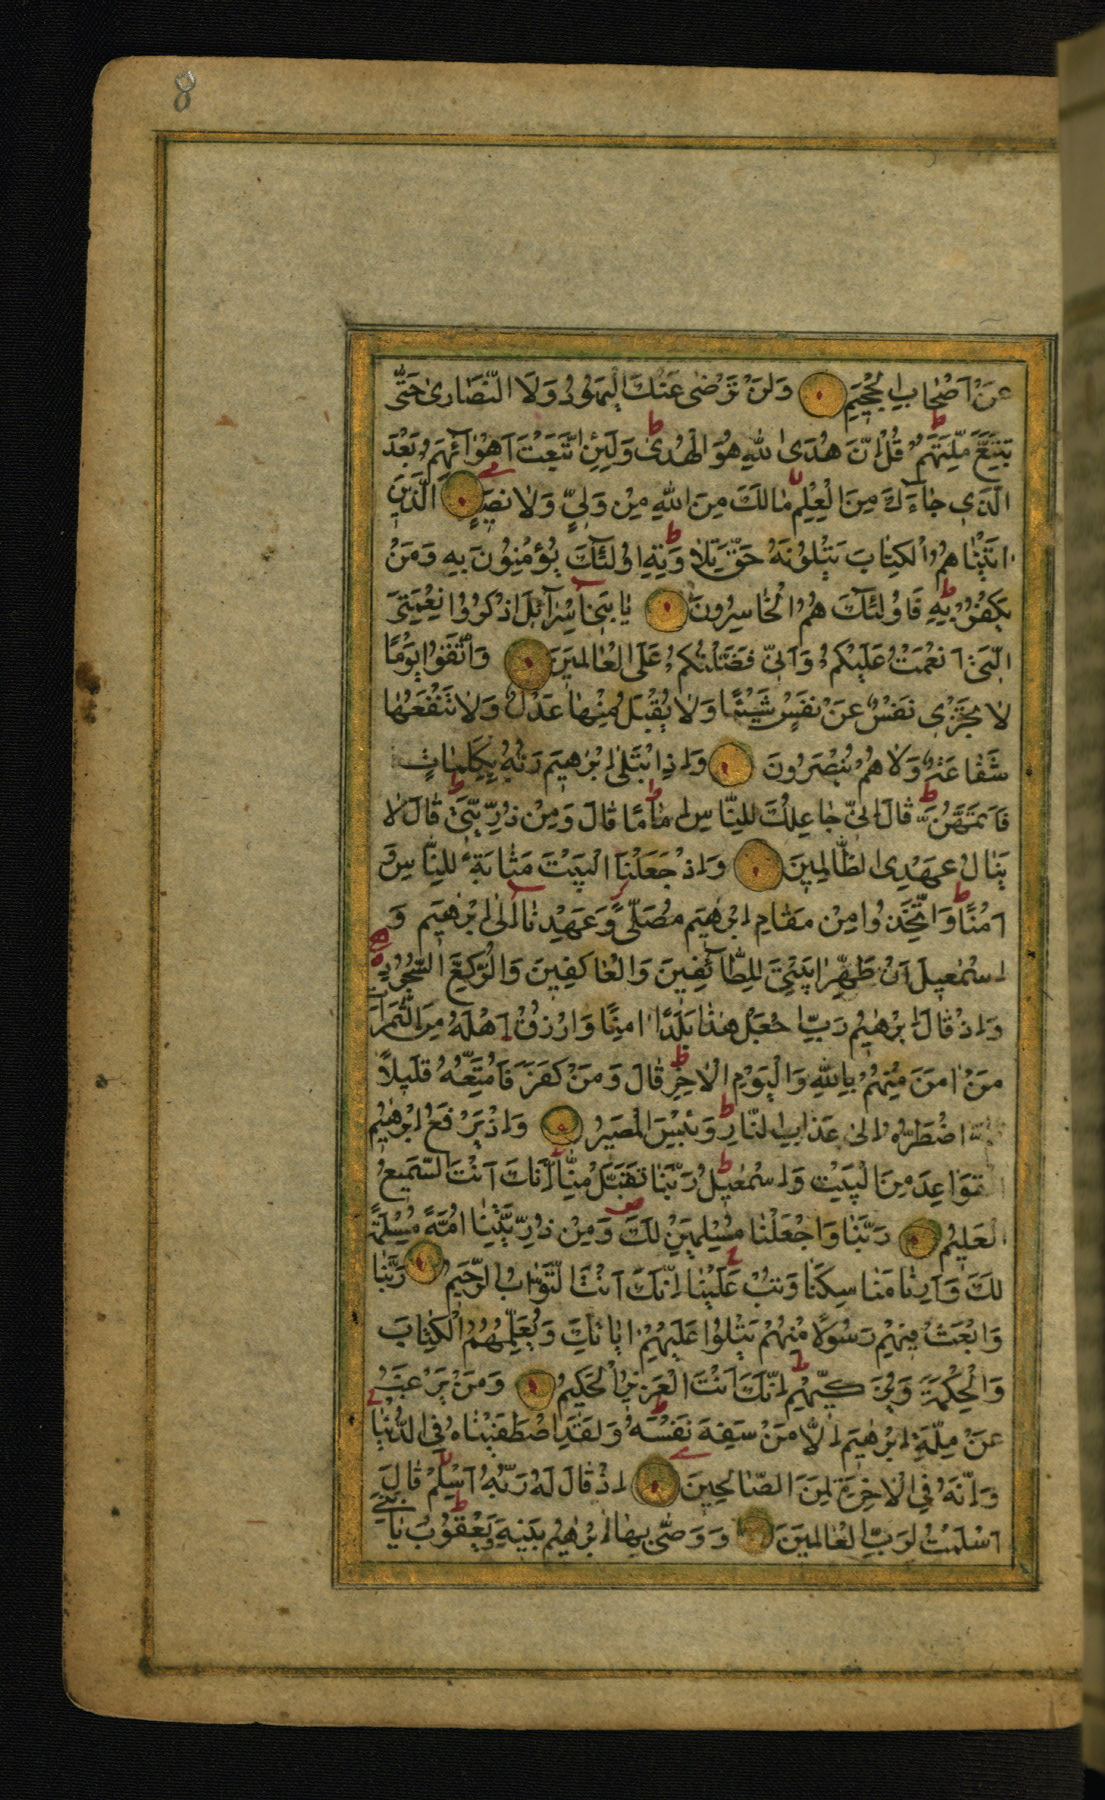 8
عَنْ اَصْحٰابِ الْجَحٖيمِ وَلَنْ تَرْضٰى عَنْكَ الْيَهُودُ وَلَا النَّصٰارٰى حَتّٰى
تَتَّبِعَ مِلَّتَهُمْ قُلْ اِنَّ هُدَى اللّٰهِ هُوَ الْهُدٰى وَلَئِنِ اتَّبَعْتَ اَهْوٰاۤئَهُمْ بَعْدَ
الَّذٖى جٰاۤءَكَ مِنَ الْعِلْمِ مٰالَكَ مِنَ اللّٰهِ مِنْ وَلِىٍّ وَلٰا نَصٖيرٍ اَلَّذٖينَ
اٰتَيْنٰاهُمُ الْكِتٰابَ يَتْلُونَهُ حَقَّ تِلٰاوَتِهِ اُولٰئِكَ يُؤْمِنُونَ بِهِ وَمَنْ
يَكْفُرْ بِهِ فَاُولٰئِكَ هُمُ الْخٰاسِرُونَ يٰا بَنٖى اِسْرٰاۤئٖلَ اذْكُرُوا نِعْمَتِىَ
الَّتٖى اَنْعَمْتُ عَلَيْكُمْ وَاَنّٖى فَضَّلْتُكُمْ عَلَى الْعٰالَمٖينَ وَاتَّقُوا يَوْمًا
لٰا تَجْزٖى نَفْسٌ عَنْ نَفْسٍ شَيْئًا وَلٰا يُقْبَلُ مِنْهٰا عَدْلٌ وَلٰا تَنْفَعُهٰا
شَفٰاعَةٌ وَلٰا هُمْ يُنْصَرُونَ وَاِذِ ابْتَلٰى اِبْرٰهٖيمَ رَبُّهُ بِكَلِمٰاتٍ
فَاَتَمَّهُنَّ قٰالَ اِنّٖى جٰاعِلُكَ لِلنّٰاسِ اِمٰامًا قٰالَ وَمِنْ ذُرِّيَّتٖى قٰالَ لٰا
يَنٰالُ عَهْدِى الظّٰالِمٖينَ وَاِذْ جَعَلْنَا الْبَيْتَ مَثٰابَةً لِلنّٰاسِ وَ
اَمْنًا وَاتَّخِذُوا مِنْ مَقٰامِ اِبْرٰهٖيمَ مُصَلًّى وَعَهِدْنٰا اِلٰى اِبْرٰهٖيمَ وَ
اِسْمٰعٖيلَ اَنْ طَهِّرٰا بَيْتِىَ لِلطّٰاۤئِفٖينَ وَالْعٰاكِفٖينَ وَالرُّكَّعِ السُّجُودِ
وَاِذْ قٰالَ اِبْرٰهٖيمُ رَبِّ اجْعَلْ هٰذٰا بَلَدًا اٰمِنًا وَارْزُقْ اَهْلَهُ مِنَ الثَّمَرٰاتِ
مَنْ اٰمَنَ مِنْهُمْ بِاللّٰهِ وَالْيَوْمِ الْاٰخِرِ قٰالَ وَمَنْ كَفَرَ فَاُمَتِّعُهُ قَلٖيلًا
ثُمَّ اَضْطَرُّهُ اِلٰى عَذٰابِ النّٰارِ وَبِئْسَ الْمَصٖيرُ وَاِذْ يَرْفَعُ اِبْرٰهٖيمُ
الْقَوٰاعِدَ مِنَ الْبَيْتِ وَاِسْمٰعٖيلُ رَبَّنٰا تَقَبَّلْ مِنّٰا اِنَّكَ اَنْتَ السَّمٖيعُ
الْعَلٖيمُ رَبَّنٰا وَاجْعَلْنٰا مُسْلِمَيْنِ لَكَ وَمِنْ ذُرِّيَّتِنٰا اُمَّةً مُسْلِمَةً
لَكَ وَاَرِنٰا مَنٰاسِكَنٰا وَتُبْ عَلَيْنٰا اِنَّكَ اَنْتَ التَّوّٰابُ الرَّحٖيمُ رَبَّنٰا
وَابْعَثْ فٖيهِمْ رَسُولًا مِنْهُمْ يَتْلُوا عَلَيْهِمْ اٰيٰاتِكَ وَيُعَلِّمُهُمُ الْكِتٰابَ
وَالْحِكْمَةَ وَيُزَكّٖيهِمْ اِنَّكَ اَنْتَ الْعَزٖيزُ الْحَكٖيمُ وَمَنْ يَرْغَبُ
عَنْ مِلَّةِ اِبْرٰهٖيمَ اِلَّا مَنْ سَفِهَ نَفْسَهُ وَلَقَدِ اصْطَفَيْنٰاهُ فِى الدُّنْيٰا
وَاِنَّهُ فِى الْاٰخِرَةِ لَمِنَ الصّٰالِحٖينَ اِذْ قٰالَ لَهُ رَبُّهُ اَسْلِمْ قٰالَ
اَسْلَمْتُ لِرَبِّ الْعٰالَمٖينَ وَوَصّٰى بِهٰا اِبْرٰهٖيمُ بَنٖيهِ وَيَعْقُوبُ يٰا بَنِىَّ